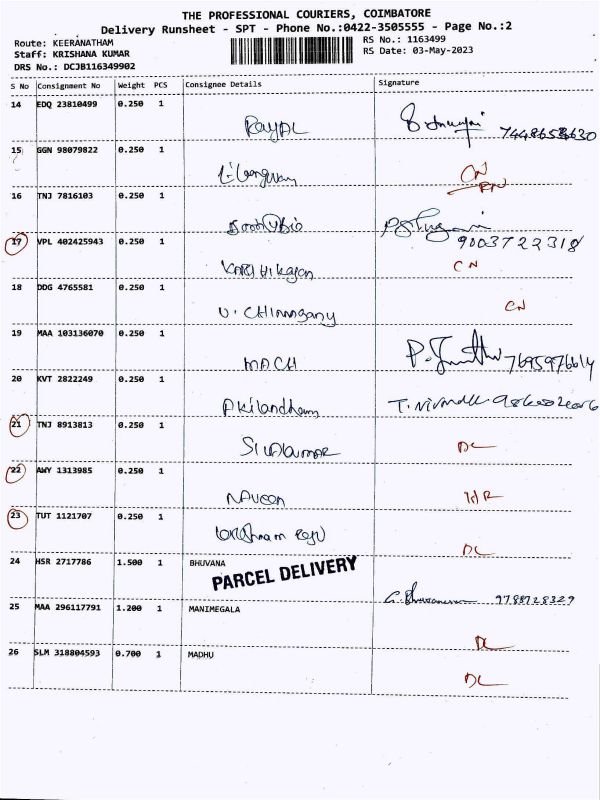 THE PROFESSIONAL COURIERS, COIMBATORE
Delivery Runsheet - SPT - Phone No.:0422-3505555 - Page No.:2
Route: KEERANATHAM
RS No.: 1163499
Staff: KRISHANA KUMAR
RS Date: 03-May-2023
DRS No.: DCJB116349902
S No Consignment No Weight PCS Consignee Details Signature
14 EDQ 23810499 0.250 1
15 GGN 98079822 0.250 1
CN
16 TNJ 7816103 0.250 1
17 VPL 402425943 0.250 1
9003722318
CN
18 DDG 4765581 0.250 1
U. CHINNGANY CN
19 MAA 103136070 0.250 1
MACH 7695976614
20 KVT 2822249 0.250 1
Akilandham
21 TNJ 8913813 0.250 1
Sivakumar DL
22 AWY 1313985 0.250 1
NAVEEN
23 TUT 1121707 0.250 1
DL
24 HSR 2717786 1.500 1 BHUVANA
PARCEL DELIVERY
9788728329
25 MAA 296117791 1.200 1 MANIMEGALA
DL
26 SLM 318804593 0.700 1 MADHU
DL